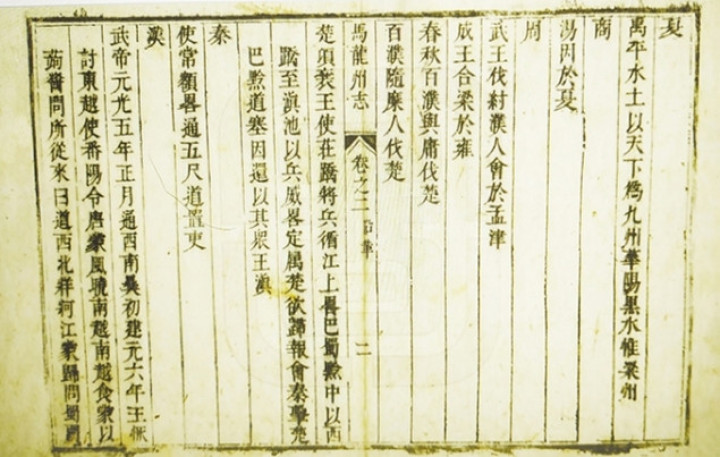 夏
禹平水土以天下爲九州華陽黑水惟梁州
商
湯因於夏
周
武王伐紂濮人會於孟津
成王合梁於雍
春秋百濮與庸伐楚
百濮隨麇人伐楚
馬龍州志 卷之二 沿革 二
楚頃襄王使莊蹻將兵循江上畧巴蜀黔中以西
蹻至滇池以兵威畧定属楚欲歸報會秦擊楚
巴黔道塞因還以其衆王滇
秦
使常頞畧通五尺道置吏
漢
武帝元光五年正月通西南夷初建元六年王恢
討東越使番陽令唐蒙風曉南越南越食蒙以
蒟醬問所從來曰道西北牂牁江蒙歸問蜀